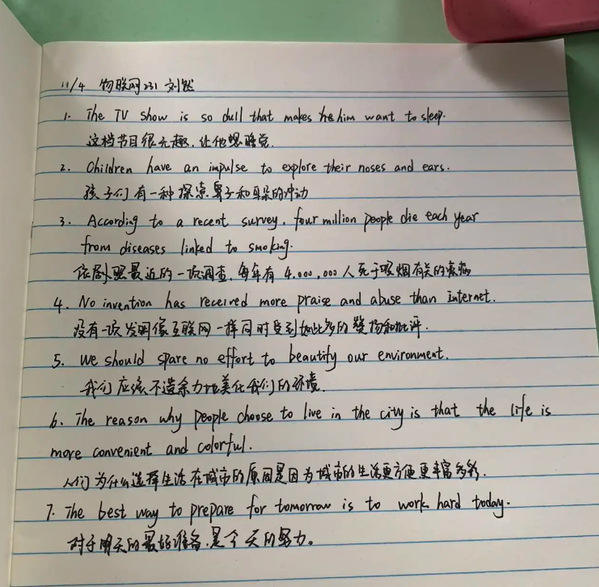 11/4 物联网231 刘然
1. The TV show is so dull that makes him want to sleep.
这档节目很无趣,让他想睡觉.
2. Children have an impulse to explore their noses and ears.
孩子们有一种探索鼻子和耳朵的冲动
3. According to a recent survey, four million people die each year
from diseases linked to smoking.
依照最近的一项调查,每年有 4,000,000 人死于吸烟有关的疾病
4. No invention has received more praise and abuse than Internet.
没有一项发明像互联网一样同时受到如此多的赞扬和批评.
5. We should spare no effort to beautify our environment.
我们应该不遗余力地美化我们的环境.
6. The reason why people choose to live in the city is that the life is
more convenient and colorful.
人们为什么选择生活在城市的原因是因为城市的生活更方便更丰富多彩.
7. The best way to prepare for tomorrow is to work hard today.
对于明天的最好准备,是今天的努力。